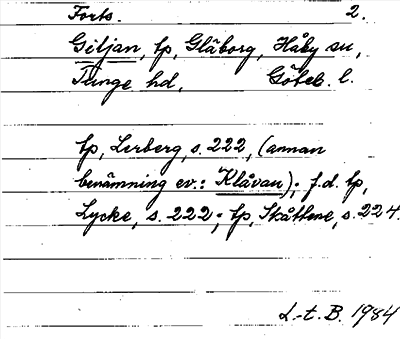 Forts. 2.
Giljan, tp, Glåborg, Håby sn,
Tunge hd, Göteb. l.
tp, Lerberg, s. 222, (annan
benämning ev.: Klåvan); f.d. tp,
Lycke, s. 222; tp, Skåttene, s. 224.
L.-t. B. 1984